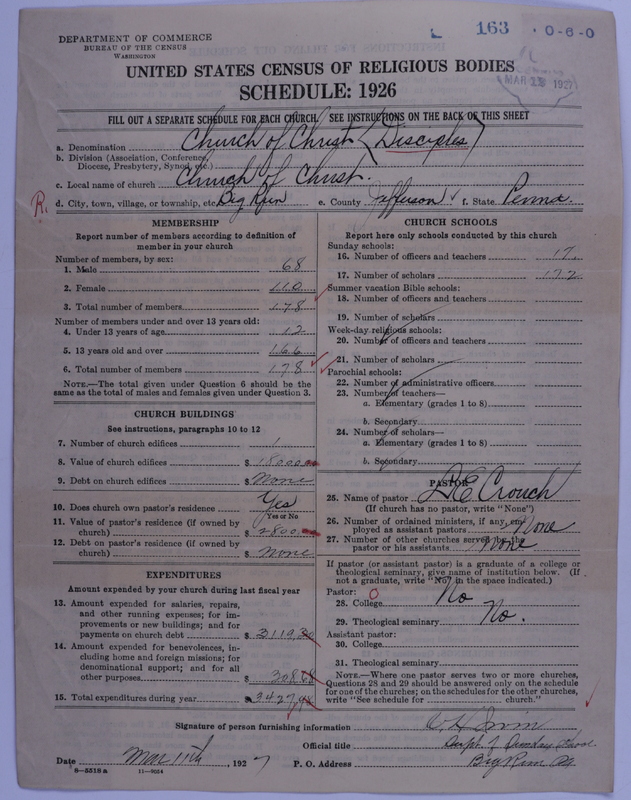 163 · 0-6-0
DEPARTMENT OF COMMERCE
BUREAU OF THE CENSUS
WASHINGTON
MAR 23 1927
UNITED STATES CENSUS OF RELIGIOUS BODIES
SCHEDULE: 1926
FILL OUT A SEPARATE SCHEDULE FOR EACH CHURCH. SEE INSTRUCTIONS ON THE BACK OF THIS SHEET
a. Denomination Church of Christ (Disciples)
b. Division (Association, Conference, Diocese, Presbytery, Synod, etc.)
c. Local name of church Church of Christ.
d. City, town, village, or township, etc. Big Run e. County Jefferson f. State Penna.
R.
MEMBERSHIP
Report number of members according to definition of
member in your church
Number of members, by sex:
1. Male 68
2. Female 110
3. Total number of members 178
Number of members under and over 13 years old:
4. Under 13 years of age 12
5. 13 years old and over 166
6. Total number of members 178
NOTE.—The total given under Question 6 should be
same as the total of males and females given under Question 3.
CHURCH BUILDINGS
See instructions, paragraphs 10 to 12
7. Number of church edifices 1
8. Value of church edifices $ 18000
9. Debt on church edifices $ None
10. Does church own pastor's residence? Yes
Yes or No
11. Value of pastor's residence (if owned by
church) $ 2800
12. Debt on pastor's residence (if owned by
church) $ None
EXPENDITURES
Amount expended by your church during last fiscal year
13. Amount expended for salaries, repairs,
and other running expenses; for im-
provements or new buildings; and for
payments on church debt $ 3119.20
14. Amount expended for benevolences, in-
cluding home and foreign missions; for
denominational support; and for all
other purposes $ 308
15. Total expenditures during year $ 3427
CHURCH SCHOOLS
Report here only schools conducted by this church
Sunday schools:
16. Number of officers and teachers 17
17. Number of scholars 172
Summer vacation Bible schools:
18. Number of officers and teachers
19. Number of scholars
Week-day religious schools:
20. Number of officers and teachers
21. Number of scholars
Parochial schools:
22. Number of administrative officers
23. Number of teachers—
a. Elementary (grades 1 to 8)
b. Secondary
24. Number of scholars—
a. Elementary (grades 1 to 8)
b. Secondary
PASTOR
25. Name of pastor Crouch
(If church has no pastor, write "None")
26. Number of ordained ministers, if any, em-
ployed as assistant pastors None
27. Number of other churches served by the
pastor or his assistants None
If pastor (or assistant pastor) is a graduate of a college or
theological seminary, give name of institution below. (If
not a graduate, write "No" in the space indicated.)
Pastor: 0
28. College No
29. Theological seminary No.
Assistant pastor:
30. College
31. Theological seminary
NOTE.—Where one pastor serves two or more churches,
Questions 28 and 29 should be answered only on the schedule
for one of the churches; on the schedules for the other churches,
write "See schedule for church."
Signature of person furnishing information Irvin
Official title Supt. of Sunday School
Date Mar 11th, 1927 P. O. Address Big Run Pa
8-5518a 11-9054